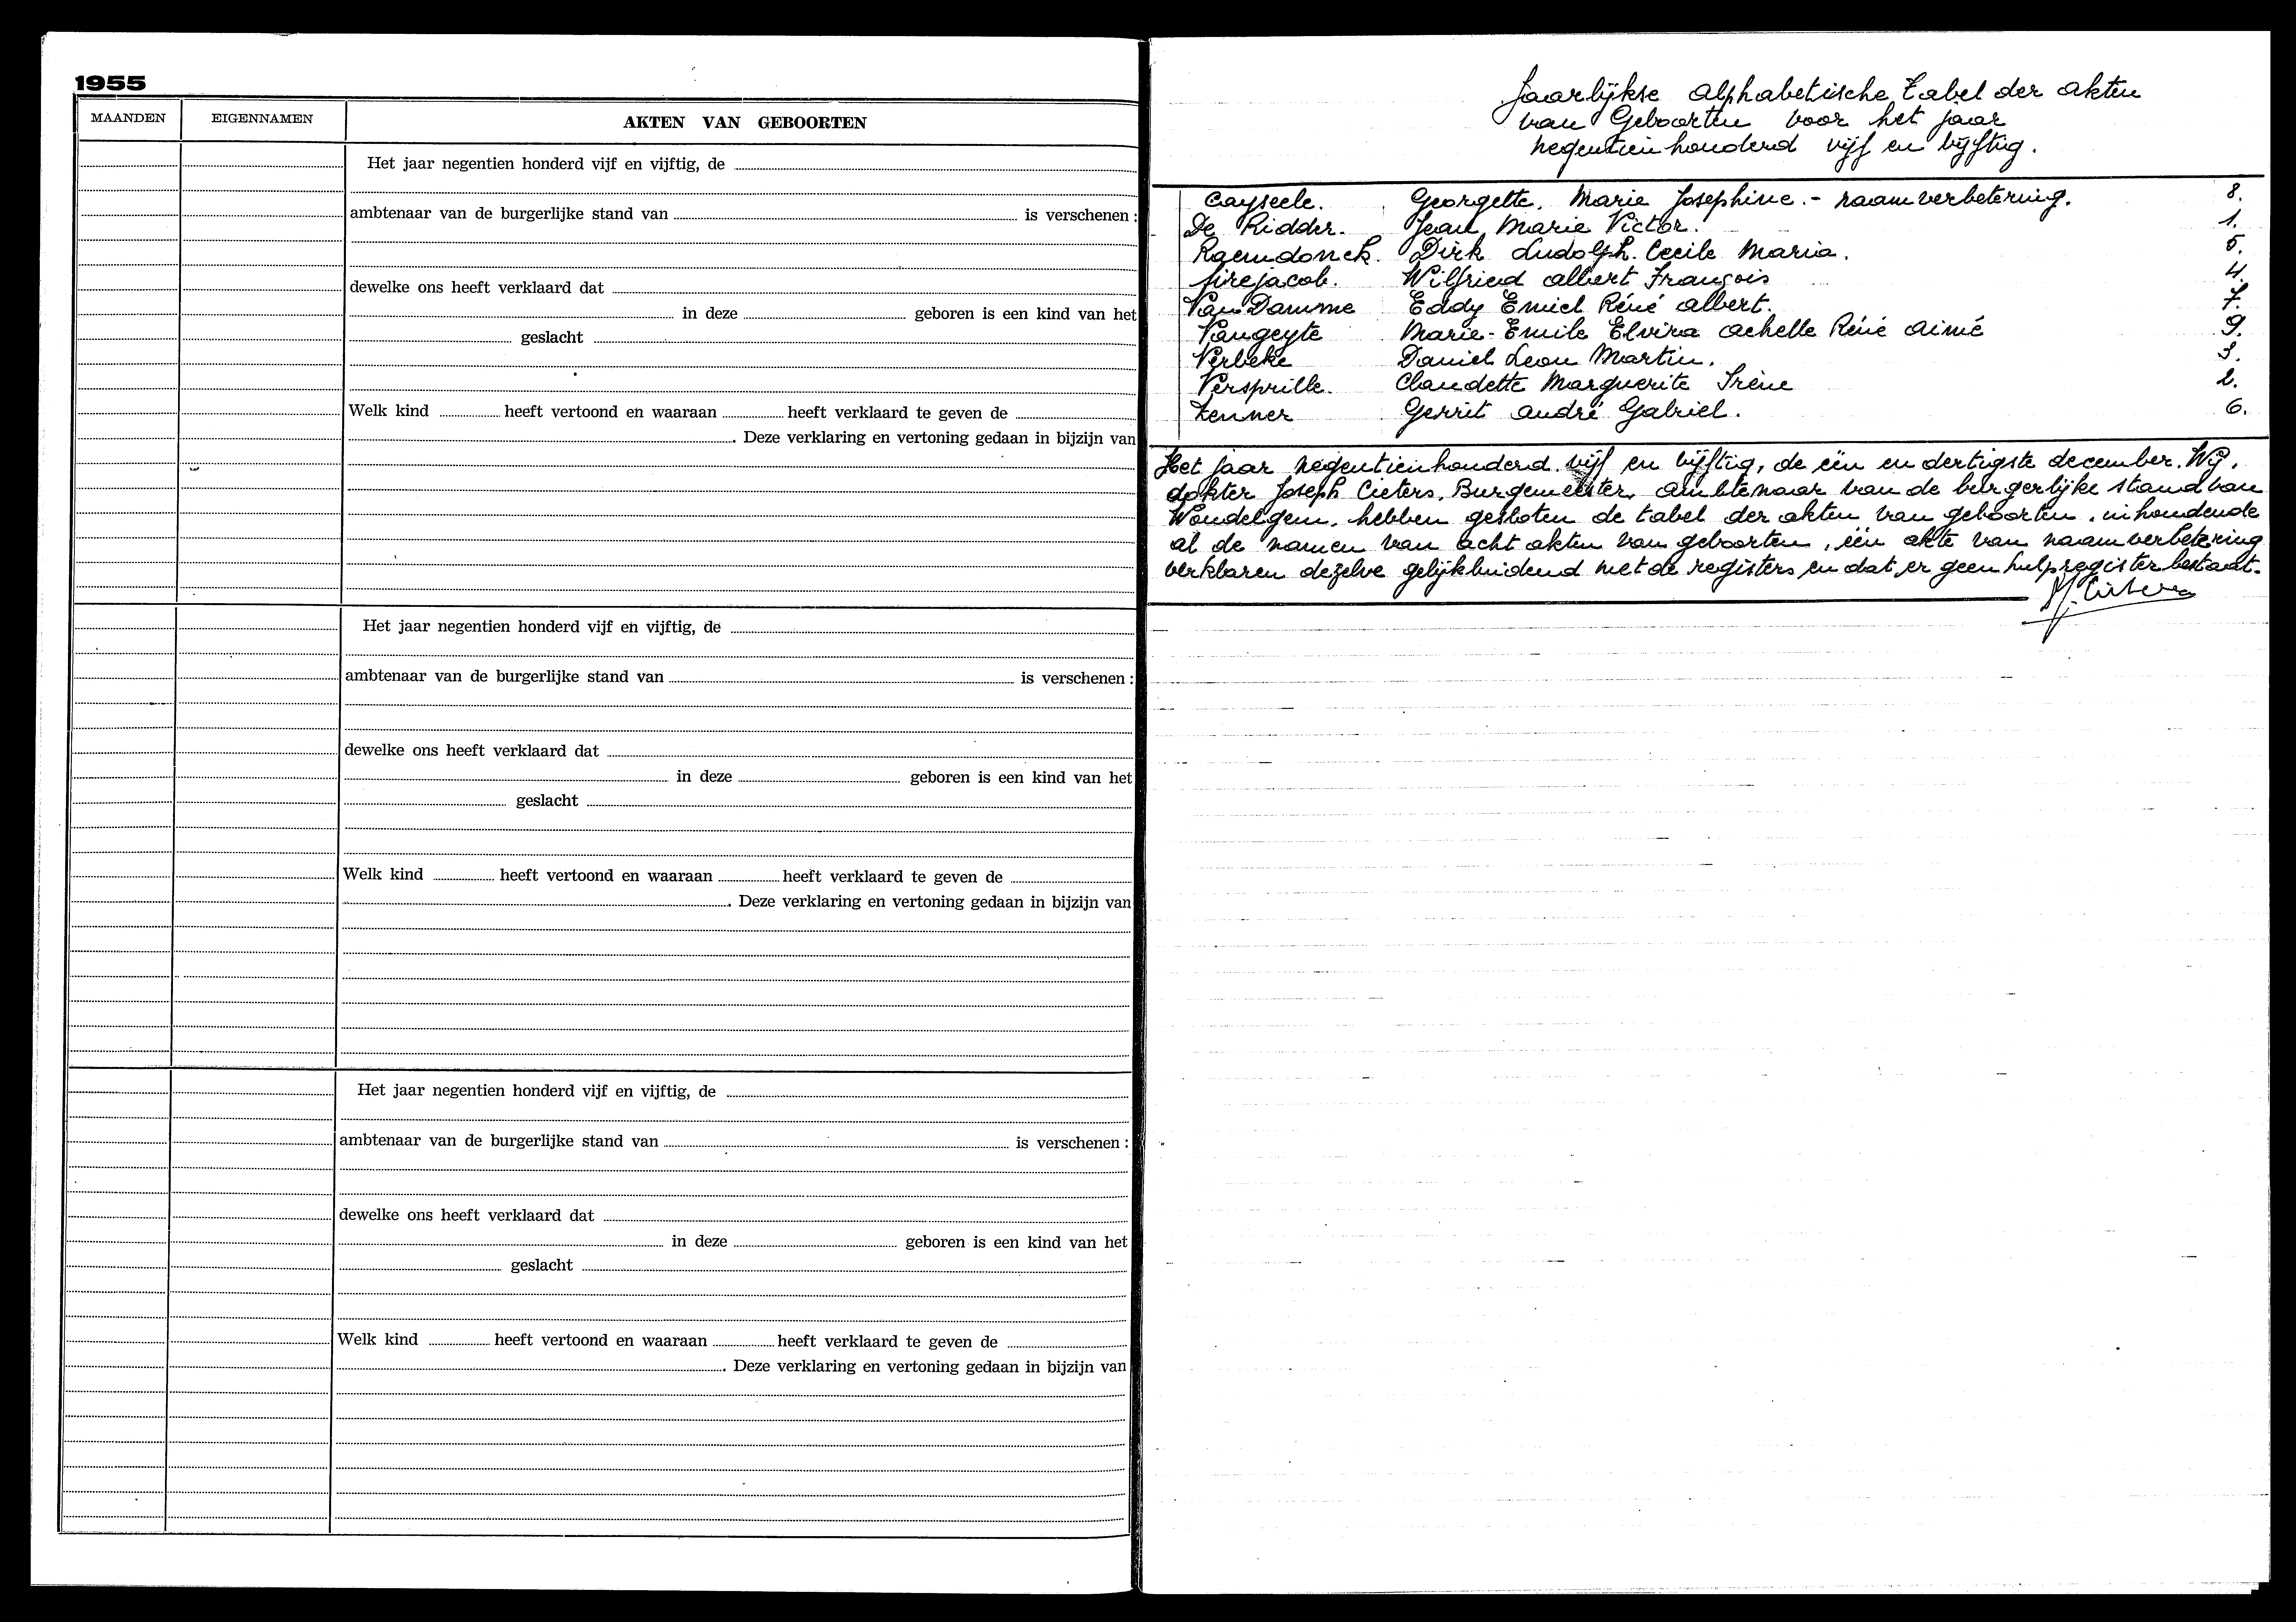 1955
MAANDEN EIGENNAMEN AKTEN VAN GEBOORTEN
Het jaar negentien honderd vijf en vijftig, de
ambtenaar van de burgerlijke stand van is verschenen :
dewelke ons heeft verklaard dat
in deze geboren is een kind van het
geslacht
Welk kind heeft vertoond en waaraan heeft verklaard te geven de
. Deze verklaring en vertoning gedaan in bijzijn van
Het jaar negentien honderd vijf en vijftig, de
ambtenaar van de burgerlijke stand van is verschenen :
dewelke ons heeft verklaard dat
in deze geboren is een kind van het
geslacht
Welk kind heeft vertoond en waaraan heeft verklaard te geven de
. Deze verklaring en vertoning gedaan in bijzijn van
Het jaar negentien honderd vijf en vijftig, de
ambtenaar van de burgerlijke stand van is verschenen :
dewelke ons heeft verklaard dat
in deze geboren is een kind van het
geslacht
Welk kind heeft vertoond en waaraan heeft verklaard te geven de
. Deze verklaring en vertoning gedaan in bijzijn van
Jaarlijkse alphabetische tabel der akten
van Geboorten voor het jaar
negentienhonderd vijf en vijftig.
Cayseele. Georgette. Marie Josephine. - naamverbetering. 8.
De Ridder. Jean Marie Victor. 1.
Raemdonck. Dirk Ludolph. Cecile Maria. 5.
Sirejacob. Wilfried Albert François 4.
Van Damme Eddy Emiel Réné Albert. 7.
Vangeyte Marie-Emile Elvira Achelle Réné Aimé 9.
Verbeke Daniel Leon Martin. 3.
Versprille. Claudette Marguerite Irène 2.
Zenner Gerrit André Gabriel. 6.
Het jaar negentienhonderd vijf en vijftig, de één en dertigste december. Wij,
dokter Joseph Cieters, Burgemeester, ambtenaar van de burgerlijke stand van
Wondelgem, hebben gesloten de tabel der akten van geboorten, inhoudende
al de namen van acht akten van geboorten, één akte van naamverbetering
verklaren dezelve gelijkluidend met de registers en dat er geen hulpregister bestaat.